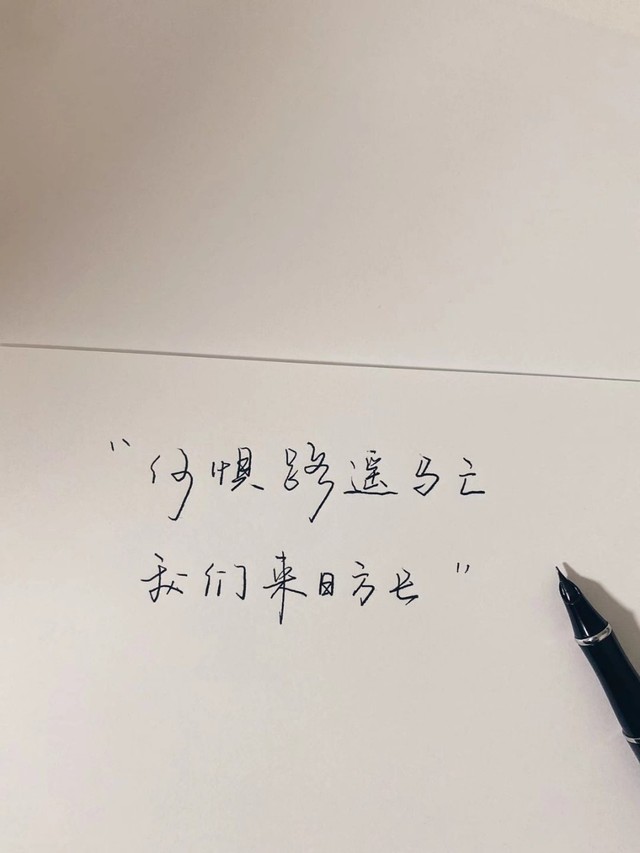 “何惧路遥马亡
我们来日方长”